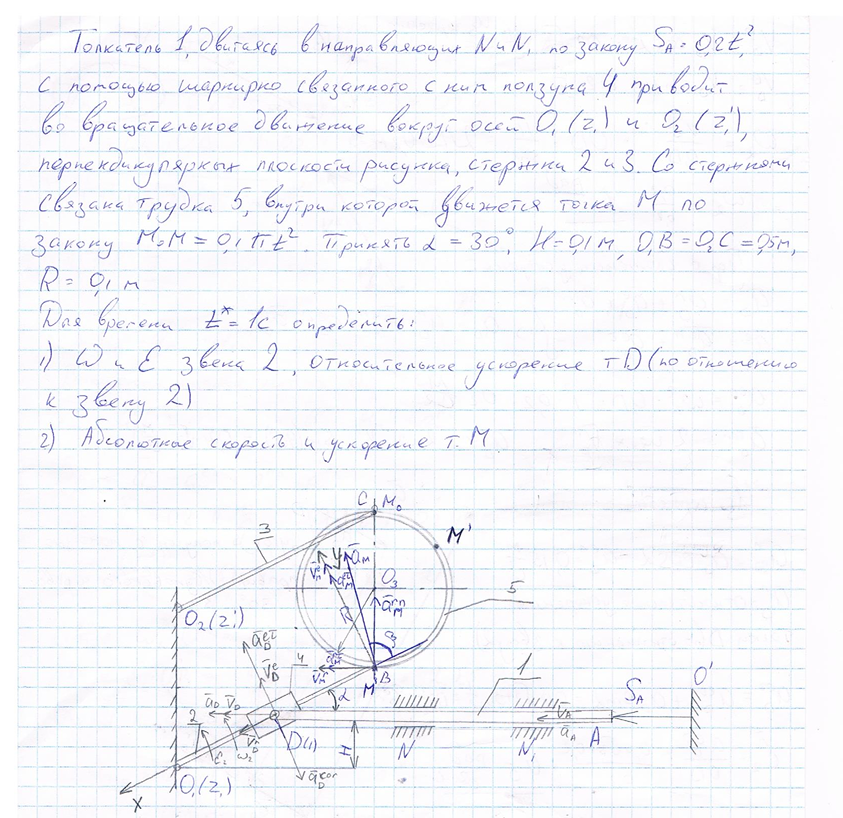 Толкатель 1, двигаясь в направляющих N и N₁ по закону S_A = 0,2t²,
с помощью шарнирно связанного с ним ползуна 4 приводит
во вращательное движение вокруг осей O₁(z₁) и O₂(z₁'),
перпендикулярных плоскости рисунка, стержни 2 и 3. Со стержнями
связана трубка 5, внутри которой движется точка M по
закону M₀M = 0,1πt². Принять α = 30°, H = 0,1 м, O₁B = O₂C = 0,5 м,
R = 0,1 м
Для времени t* = 1с определить:
1) ω и ε звена 2, относительное ускорение т D (по отношению
к звену 2)
2) Абсолютные скорость и ускорение т. M
C M₀
3
M'
O₃
5
R
β
O₂(z₁')
4
B
M
α
1
O'
S_A
2
D(1)
H
N
N₁
A
O₁(z₁)
X